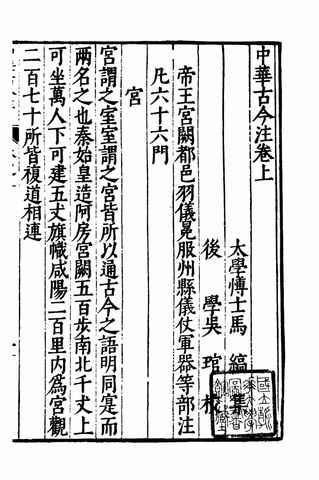 中華古今注卷上
太學博士馬縞集
後學吳琯校
帝王宮闕都邑羽儀冕服州縣儀仗軍器等部注
凡六十六門
宮
宮謂之室室謂之宮皆所以通古今之語明同寔而
兩名之也秦始皇造阿房宮闕五百步南北千丈上
可坐萬人下可建五丈旗幟咸陽二百里內為宮觀
二百七十所皆複道相連